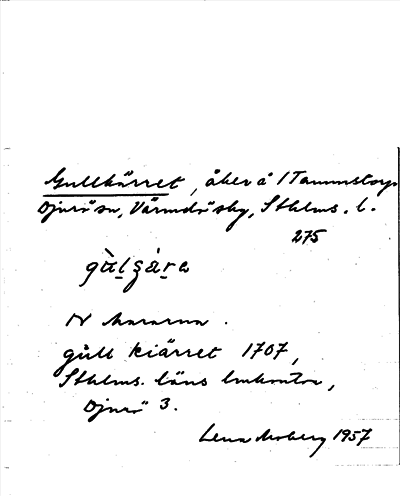 Gullkärret, åker å 1 Tammstorp
Djurö sn, Värmdö skg, Sthlms. l.
275
gùlʒár̲a
N Mararna.
gull kiärret 1707,
Sthlms. läns lmkontor,
Djurö 3.
Lena Moberg 1957